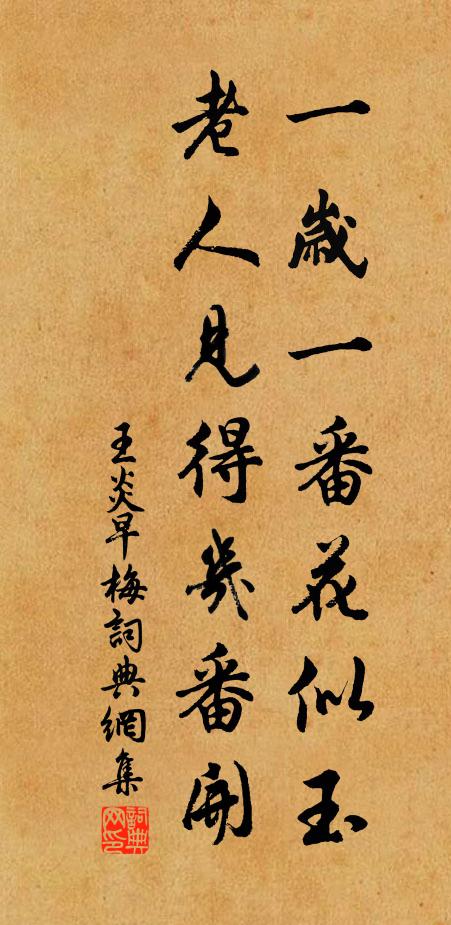 一歲一番花似玉
老人見得幾番開
王炎早梅詞典網集
詞典网印